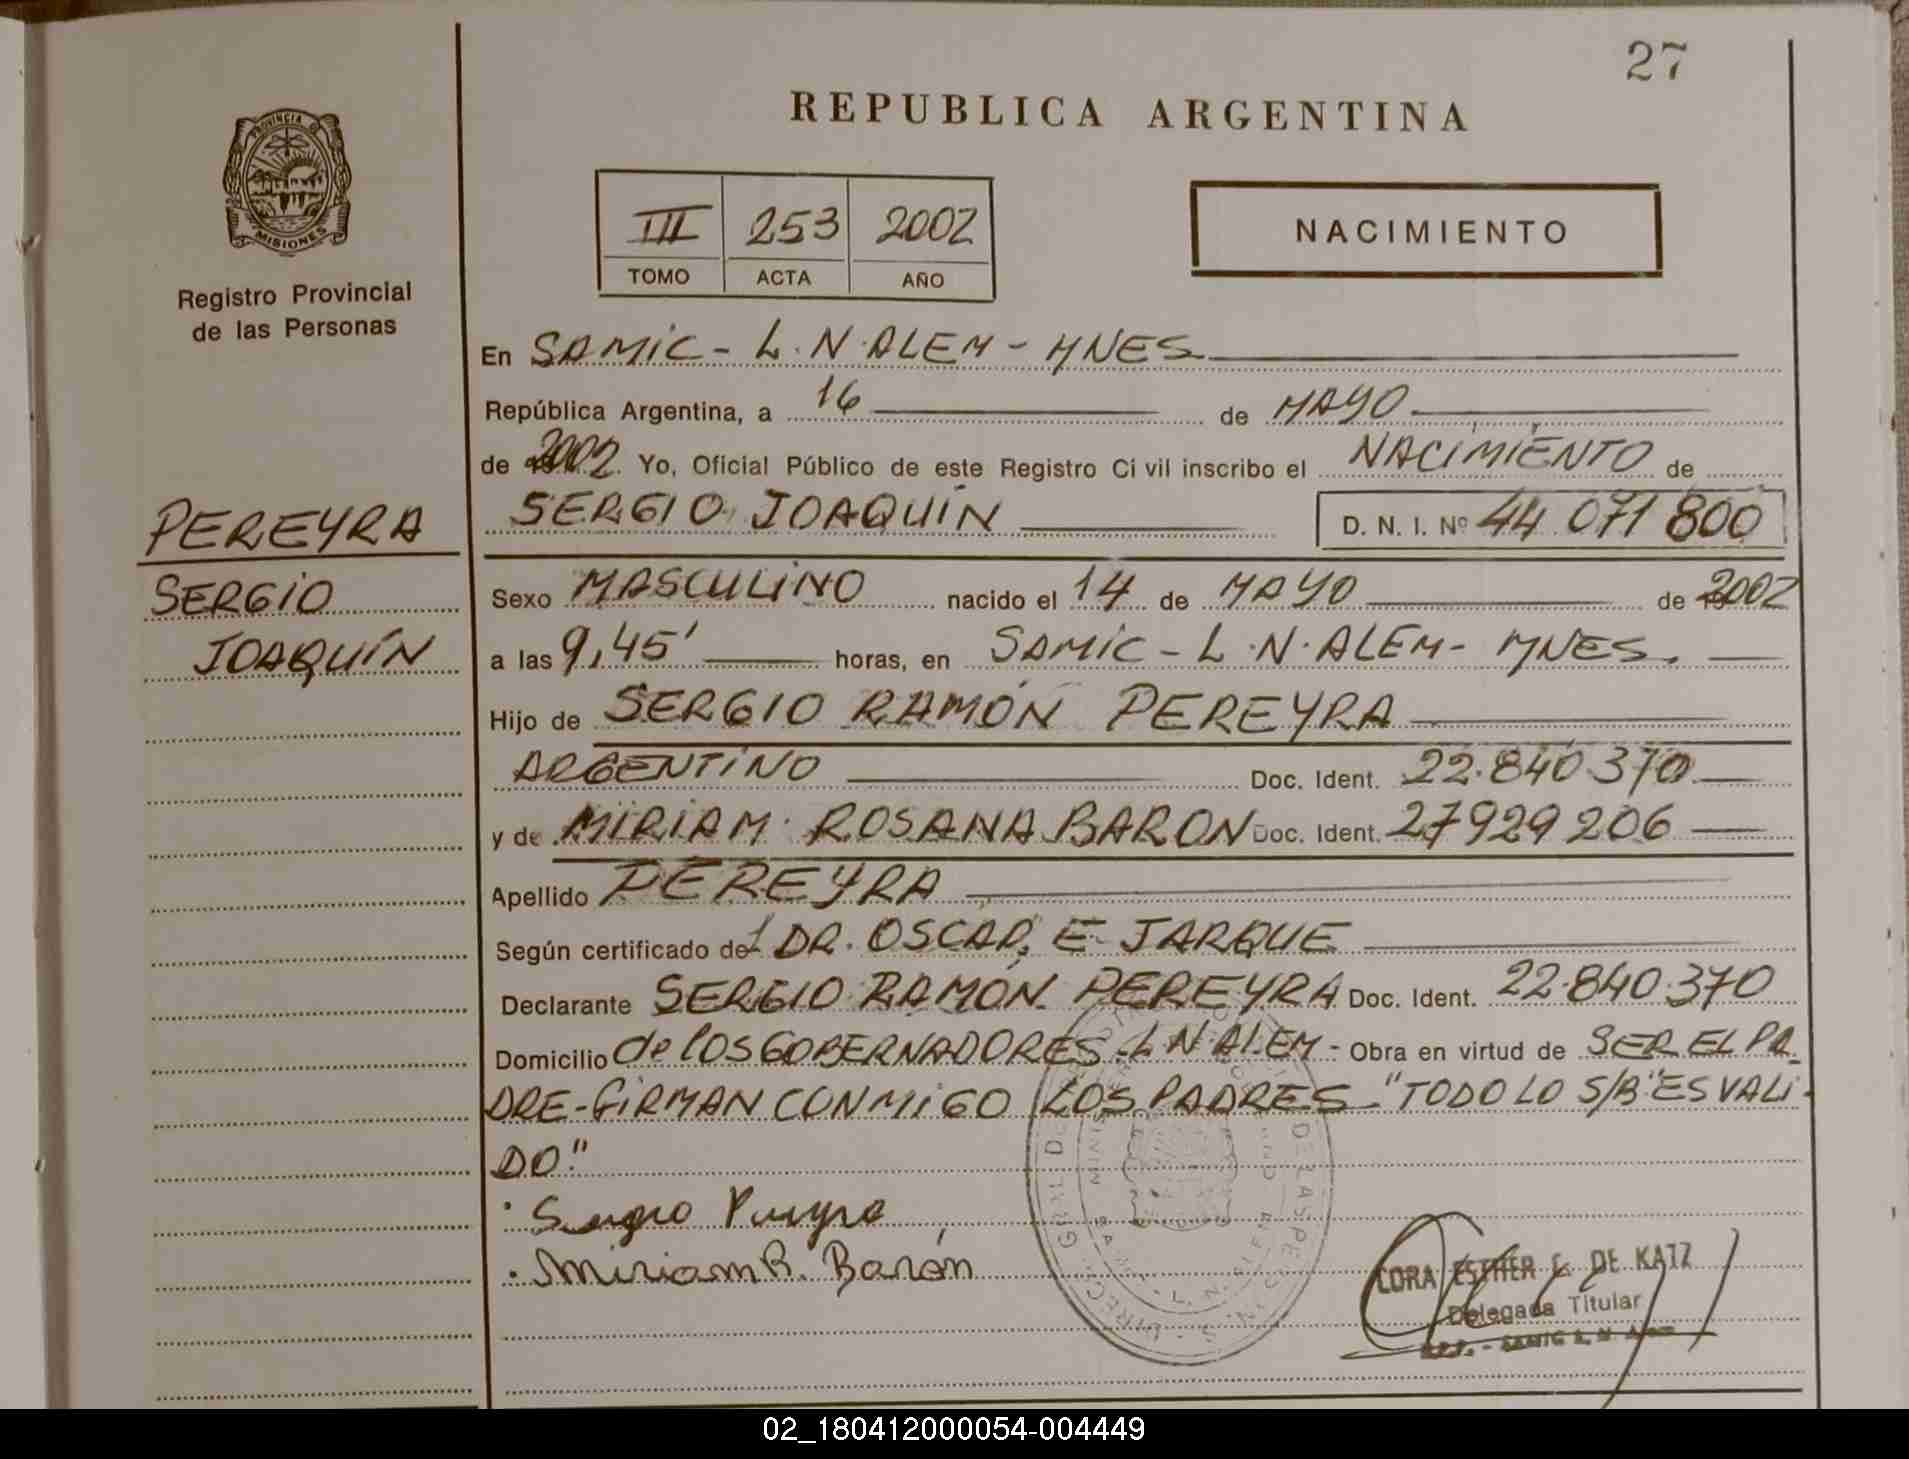 27
REPUBLICA ARGENTINA
PROVINCIA DE
MISIONES
Registro Provincial
de las Personas
III 253 2002
TOMO ACTA AÑO
NACIMIENTO
En SAMIC - L.N.ALEM - MNES
República Argentina, a 16 de MAYO
de 2002 Yo, Oficial Público de este Registro Civil inscribo el NACIMIENTO de
SERGIO JOAQUÍN D. N. I. Nº 44.071.800
PEREYRA
SERGIO
JOAQUÍN
Sexo MASCULINO nacido el 14 de MAYO de 2002
a las 9,45' horas, en SAMIC - L.N.ALEM - MNES.
Hijo de SERGIO RAMÓN PEREYRA
ARGENTINO Doc. Ident. 22.840.370
y de MIRIAM ROSANA BARON Doc. Ident. 27929206
Apellido PEREYRA
Según certificado del DR. OSCAR E. JARQUE
Declarante SERGIO RAMÓN PEREYRA Doc. Ident. 22.840.370
Domicilio de LOS GOBERNADORES - L N ALEM - Obra en virtud de SER EL PA-
DRE - FIRMAN CONMIGO LOS PADRES - "TODO LO S/B" ES VALI-
DO"
Sergio Pereyra
Miriam R. Barón
CORA ESTHER E. DE KATZ
Delegada Titular
02_180412000054-004449